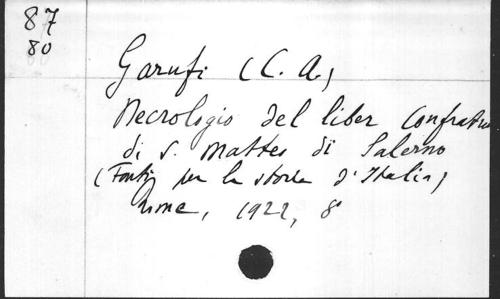 87
80
Garufi (C. A.)
Necrologio del liber Confratrum
di S. Matteo di Salerno
(Fonti per la storia d'Italia)
Rome, 1922, 8°